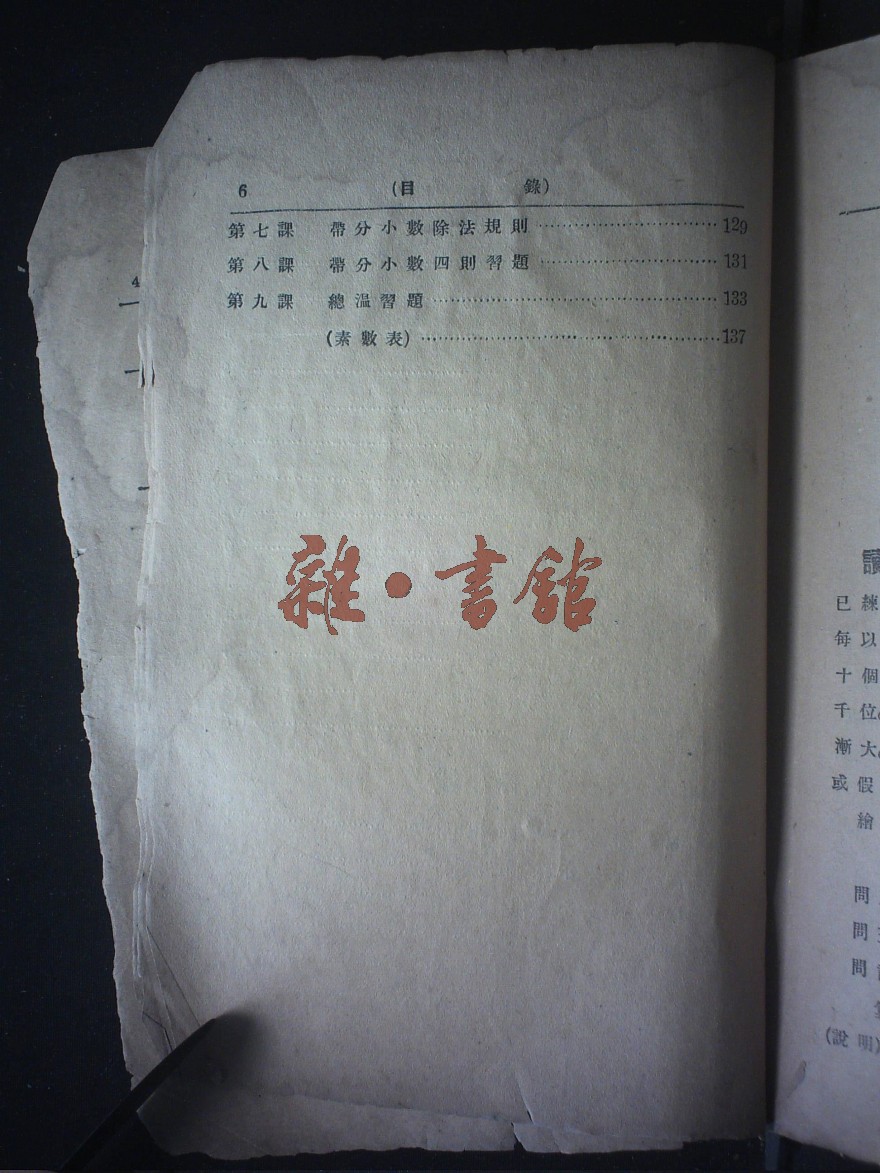 6 (目 錄)
第七課 帶分小數除法規則⋯⋯⋯⋯⋯⋯⋯⋯129
第八課 帶分小數四則習題⋯⋯⋯⋯⋯⋯⋯⋯131
第九課 總溫習題⋯⋯⋯⋯⋯⋯⋯⋯⋯⋯⋯⋯133
(素數表)⋯⋯⋯⋯⋯⋯⋯⋯⋯⋯⋯⋯137
雜·書館
4
讀
已練
每以
十個
千位。
漸大。
或假
繪
問
問
問
(說明)